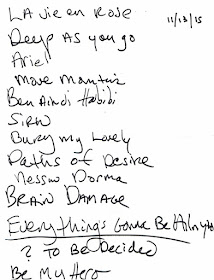 LA vie en Rose
11/13/15
Deep As you go
Ariel
Move Mountains
Ben Aindi Habibi
Siren
Bury my Lovely
Paths of Desire
Nessun Dorma
BRAIN DAMAGE
Everything's Gonna Be Alright
? To Be Decided
Be My Hero